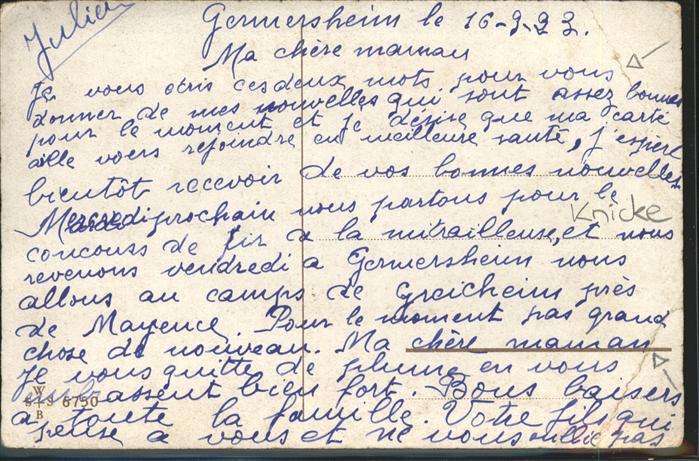 Julien
Germersheim le 16-9-23.
Ma chère maman
Je vous écris ces deux mots pour vous
donner de mes nouvelles qui sont assez bonnes
pour le moment et je désire que ma carte
aille vous rejoindre en meilleure santé, j'espère
bientôt recevoir de vos bonnes nouvelles
Mercredi prochain nous partons pour le
Knicke
concours de tir à la mitrailleuse, et nous
revenons vendredi a Germersheim nous
allons au camps de Greicheim près
de Mayence. Pour le moment pas grand
chose de nouveau. Ma chère maman
Je vous quitte de plume en vous
embrassent bien fort. Bons baisers
6750
B
a toute la famille. Votre fils qui
pense a vous et ne vous oublie pas